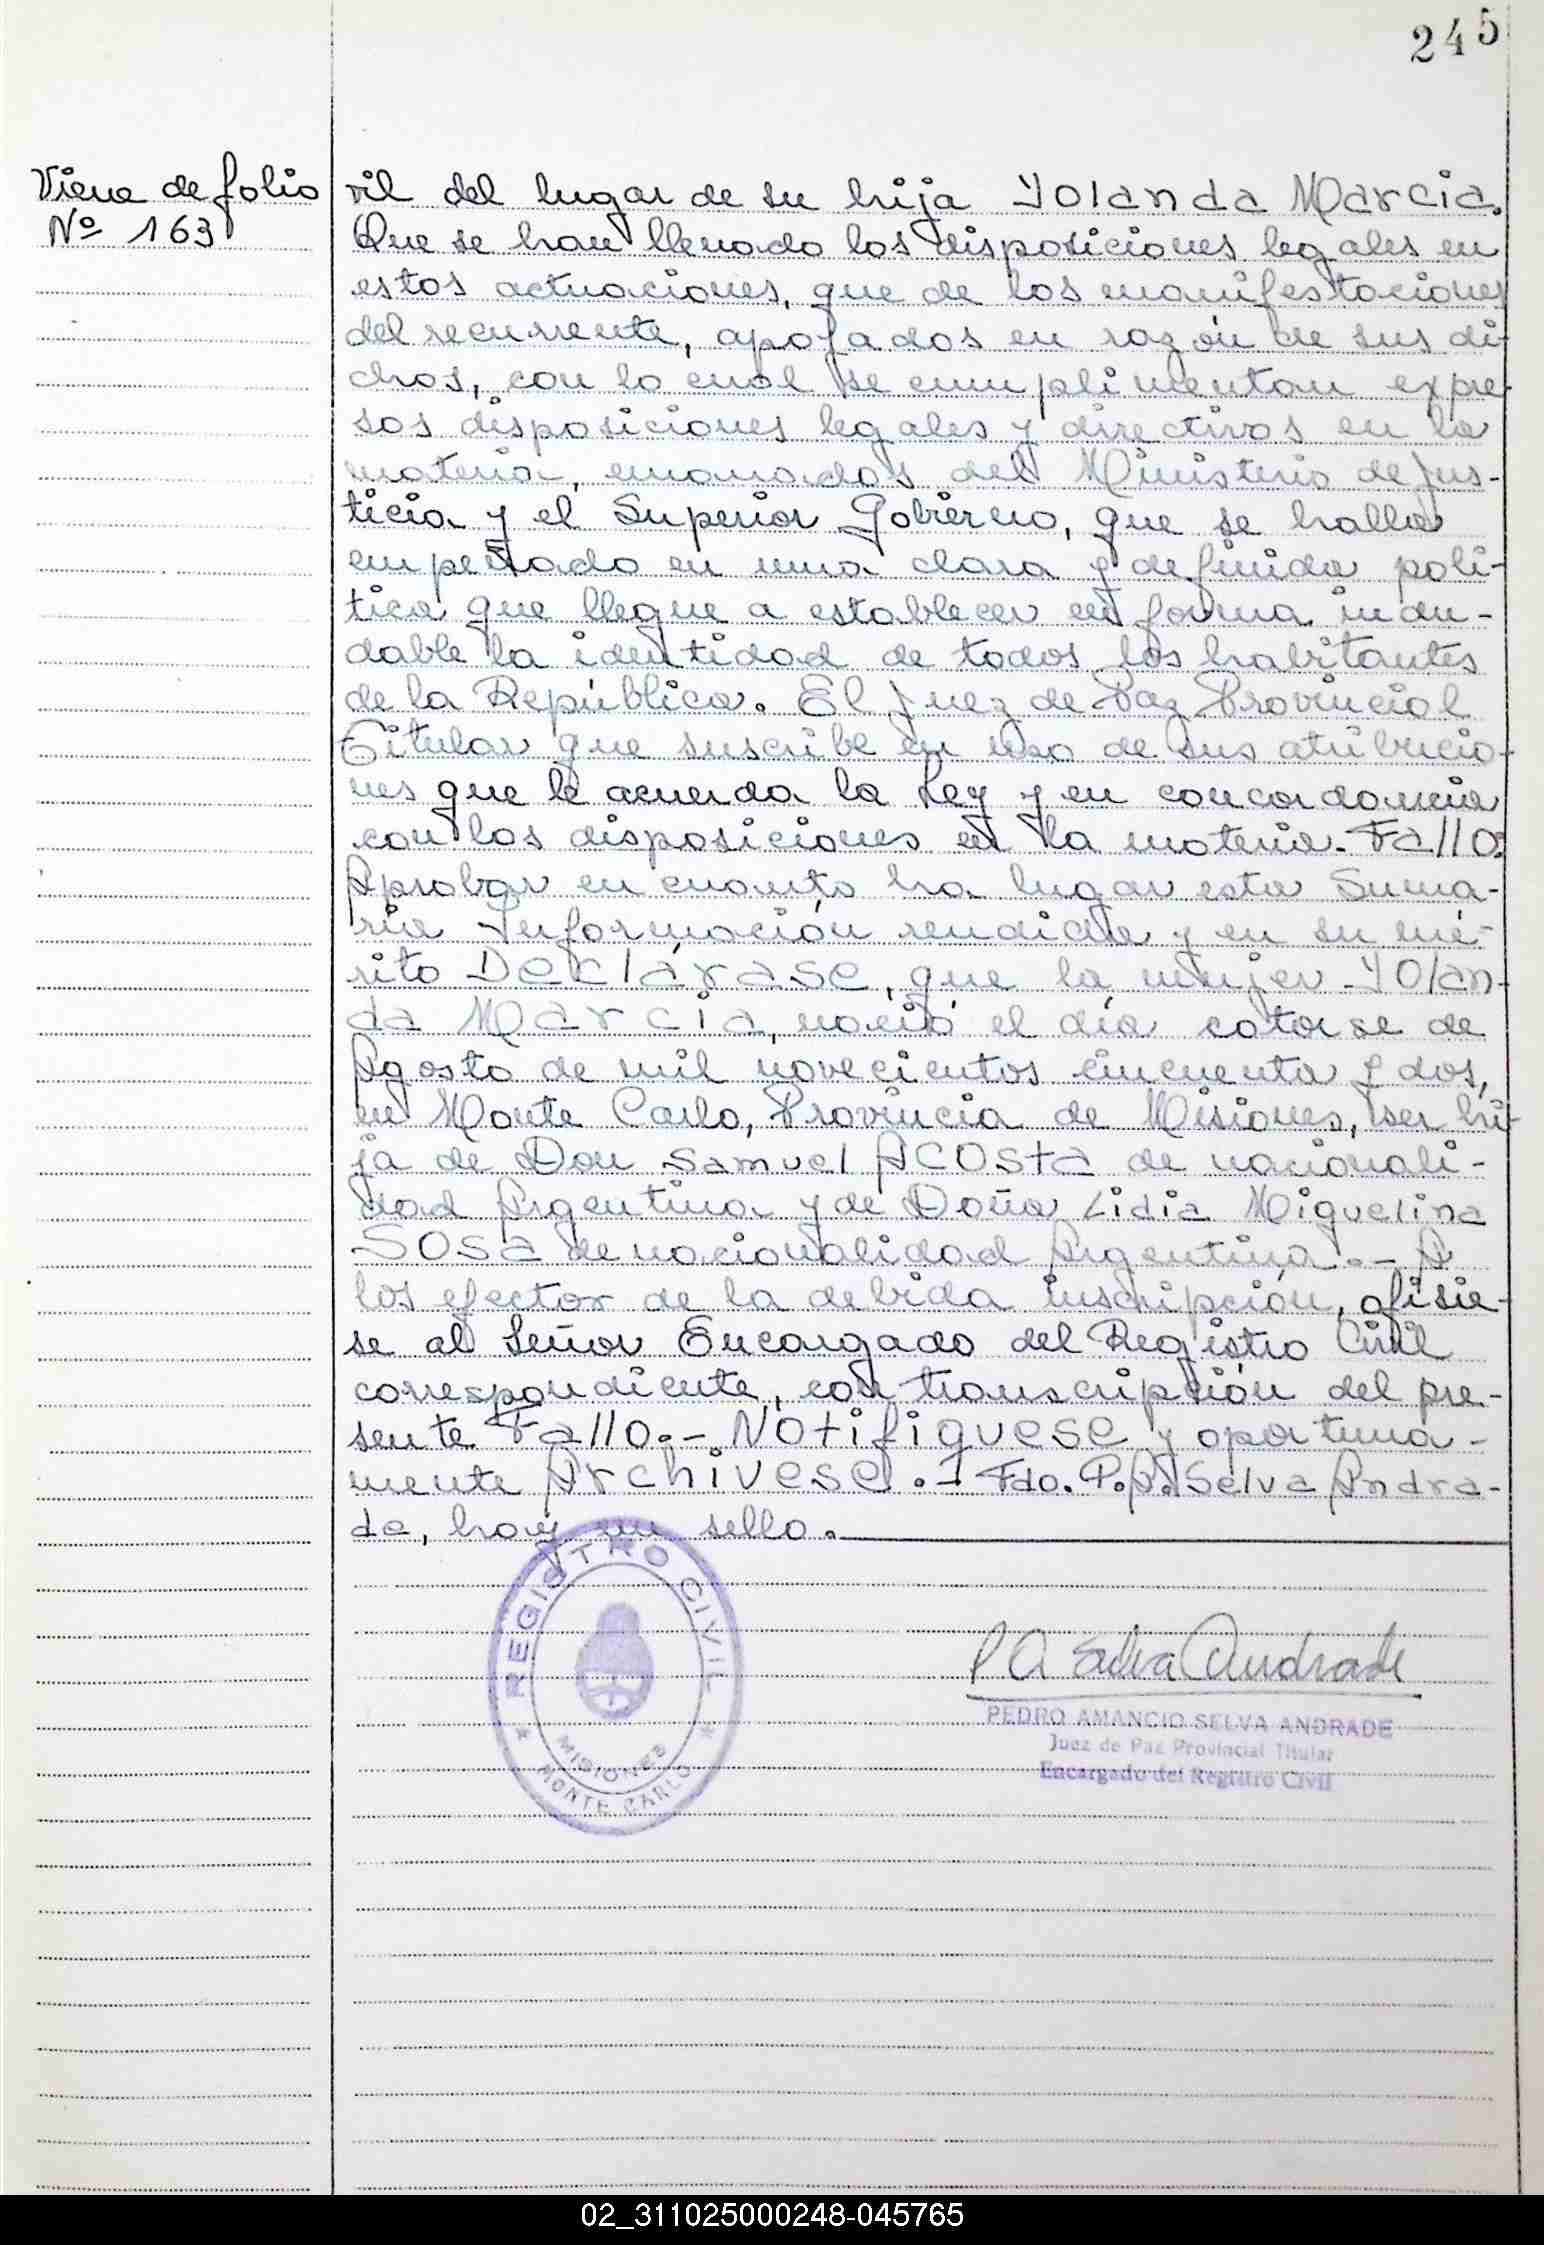 245
Viene de folio
Nº 163
vil del lugar de su hija Yolanda Marcia.
Que se han llenado las disposiciones legales en
estas actuaciones, que de las manifestaciones
del recurrente, apojadas en razón de sus di-
chos, con lo cual se cumplimentan expre-
sas disposiciones legales y directivas en la
materia, emanadas del Ministerio de Jus-
ticia y el Superior Gobierno, que se halla
empeñado en una clara y definida polí-
tica que llegue a establecer en forma indu-
dable la identidad de todos los habitantes
de la República. El Juez de Paz Provincial
Titular que suscribe en uso de sus atribucio-
nes que le acuerda la Ley y en concordancia
con las disposiciones en la materia. Fallo:
Aprobar en cuanto ha lugar esta Suma-
ria Información rendida y en su mé-
rito Declárase, que la mujer Yolan-
da Marcia, nació el día catorse de
Agosto de mil novecientos cincuenta y dos,
en Monte Carlo, Provincia de Misiones, ser hi-
ja de Don Samuel Acosta de nacionali-
dad Argentina y de Doña Lidia Miguelina
Sosa de nacionalidad Argentina.- A
los efectos de la debida inscripción, ofisie-
se al Señor Encargado del Registro Civil
correspondiente, con transcripción del pre-
sente Fallo.- Notifiquese y oportuna-
mente Archivese.- Fdo. P.A. Selva Andra-
de, hay un sello.
REGISTRO CIVIL
MISIONES
MONTE CARLO
P A Selva Andrade
PEDRO AMANCIO SELVA ANDRADE
Juez de Paz Provincial Titular
Encargado del Registro Civil
02_311025000248-045765